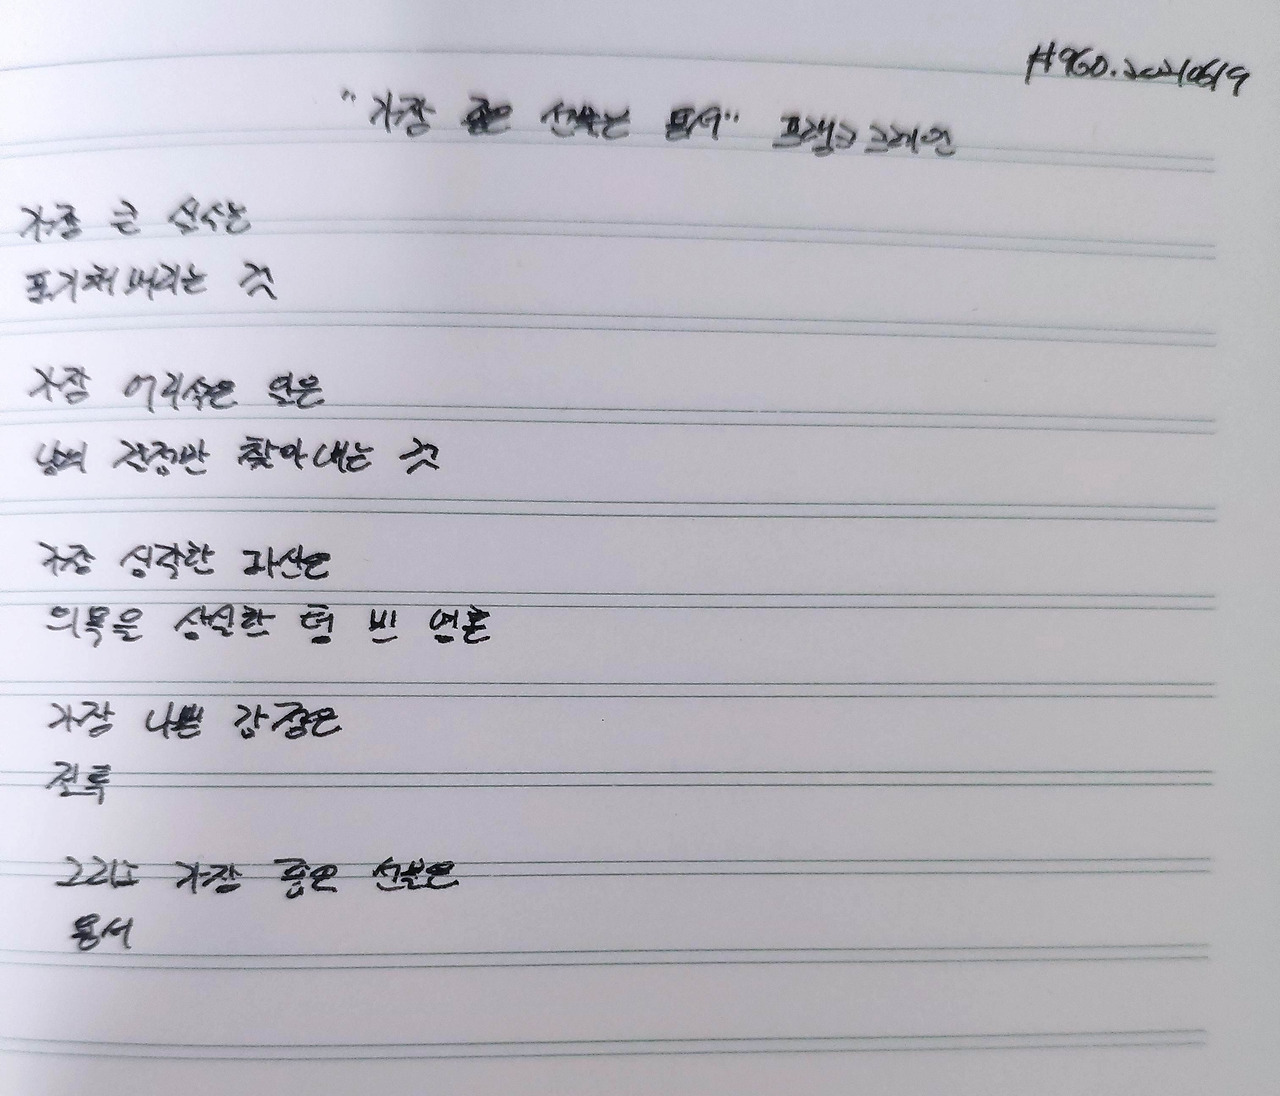 #960.20210619
"가장 좋은 선물은 용서" 프랭크 크레인
가장 큰 실수는
포기해 버리는 것
가장 어리석은 일은
남의 결점만 찾아내는 것
가장 심각한 파산은
의욕을 상실한 텅 빈 영혼
가장 나쁜 감정은
질투
그리고 가장 좋은 선물은
용서